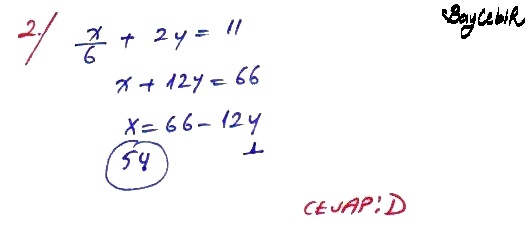 BayCebiR
2.) x/6 + 2y = 11
x + 12y = 66
x = 66 - 12y
54 1
CEVAP: D